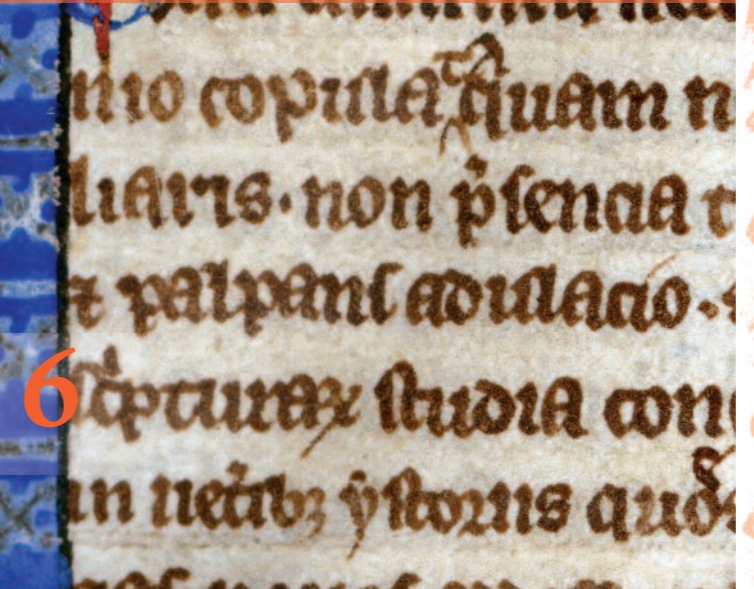 nio copula ta quam n
liaris· non p̄sencia t
⁊ palpans adulacio·
6
sc͛pturaꝝ studia con
in uet͛ibꝫ ẏstoriis quoſ